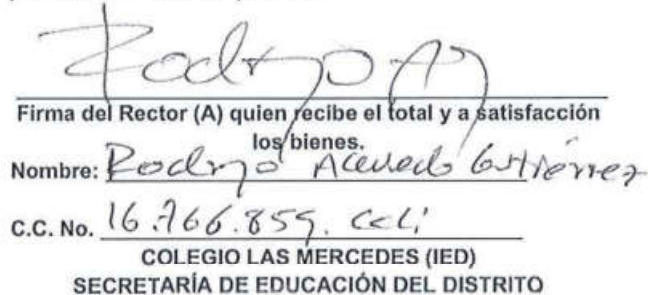 Rodrigo A
Firma del Rector (A) quien recibe el total y a satisfacción
los bienes.
Nombre: Rodrigo Acevedo Gutiérrez
C.C. No. 16.766.859. Cali
COLEGIO LAS MERCEDES (IED)
SECRETARÍA DE EDUCACIÓN DEL DISTRITO